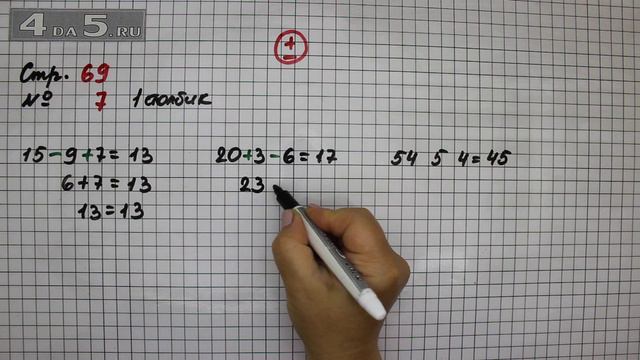 4 DA 5.RU
±
Стр. 69
№ 7 1 столбик
15-9+7= 13
6+7= 13
13=13
20+3-6=17
23
54 5 4=45